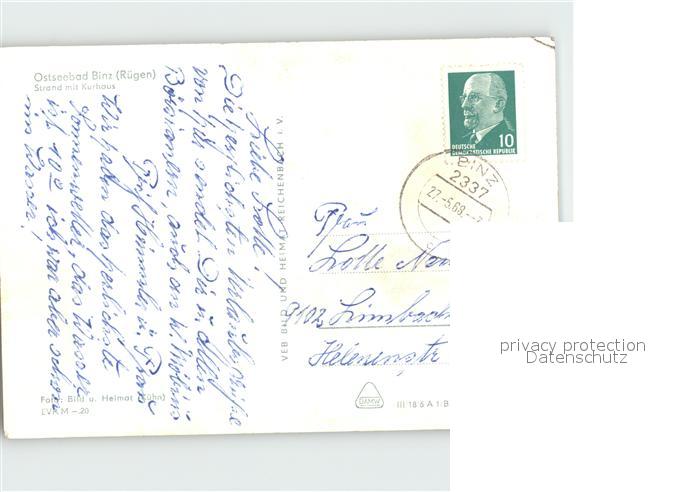 Ostseebad Binz (Rügen)
Strand mit Kurhaus
Liebe Lotte!
Die herzlichsten Urlaubsgrüße
von hier sendet Dir u. allen
auch an
Fritz u. Frau
Wir haben das herrlichste
Sonnenwetter, das Wasser
ist 10° ich war aber schon
ins Wasser!
Foto: Bild u. Heimat (Kühn)
EVP M -.20
VEB BILD UND HEIMAT REICHENBACH I. V.
10
DEUTSCHE
DEMOKRATISCHE REPUBLIK
BINZ
2337
27.-5.68.
Frau
Lotte
9102 Limbach
Helenenstr
DAMW
III 18 6 A 1 B
privacy protection
Datenschutz